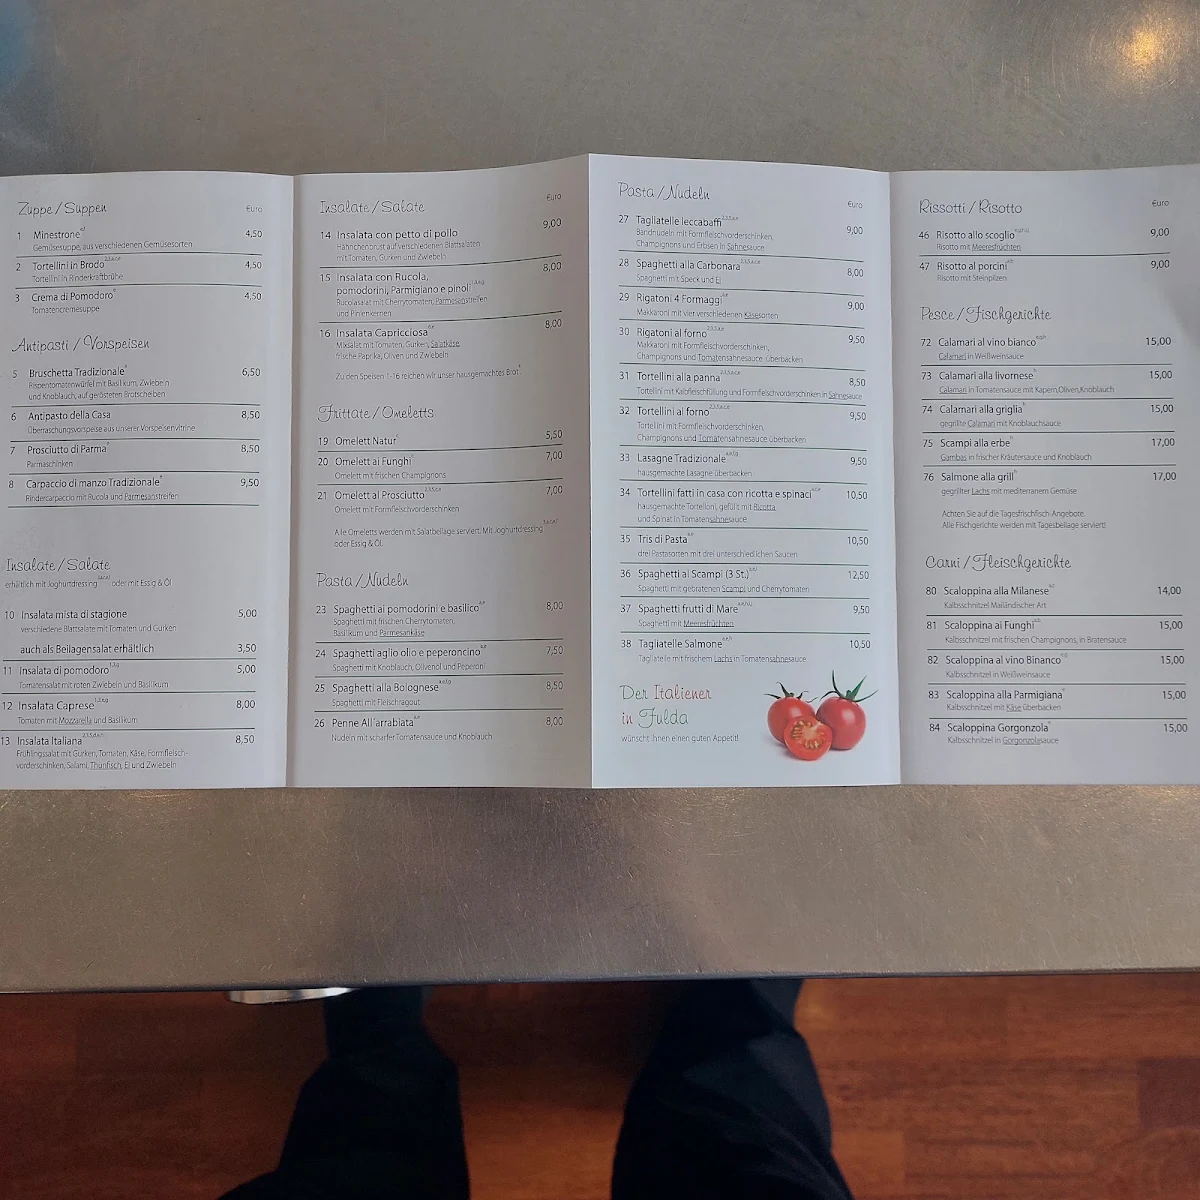 Zuppe / Suppen
€uro
1 Minestrone 4,50
Gemüsesuppe, aus verschiedenen Gemüsesorten
2 Tortellini in Brodo 4,50
Tortellini in Rinderkraftbrühe
3 Crema di Pomodoro 4,50
Tomatencremesuppe
Antipasti / Vorspeisen
5 Bruschetta Tradizionale 6,50
Rispentomatenwürfel mit Basilikum, Zwiebeln
und Knoblauch, auf gerösteten Brotscheiben
6 Antipasto della Casa 8,50
Überraschungsvorspeise aus unserer Vorspeisenvitrine
7 Prosciutto di Parma 8,50
Parmaschinken
8 Carpaccio di manzo Tradizionale 9,50
Rindercarpaccio mit Rucola und Parmesanstreifen
Insalate / Salate
erhältlich mit Joghurtdressing oder mit Essig & Öl
10 Insalata mista di stagione 5,00
verschiedene Blattsalate mit Tomaten und Gurken
auch als Beilagensalat erhältlich 3,50
11 Insalata di pomodoro 5,00
Tomatensalat mit roten Zwiebeln und Basilikum
12 Insalata Caprese 8,00
Tomaten mit Mozzarella und Basilikum
13 Insalata Italiana 8,50
Frühlingssalat mit Gurken, Tomaten, Käse, Formfleisch-
vorderschinken, Salami, Thunfisch, Ei und Zwiebeln
Insalate / Salate
€uro
14 Insalata con petto di pollo 9,00
Hähnchenbrust auf verschiedenen Blattsalaten
mit Tomaten, Gurken und Zwiebeln
15 Insalata con Rucola, 8,00
pomodorini, Parmigiano e pinoli
Rucolasalat mit Cherrytomaten, Parmesanstreifen
und Pinienkernen
16 Insalata Capricciosa 8,00
Mixsalat mit Tomaten, Gurken, Salatkäse,
frische Paprika, Oliven und Zwiebeln
Zu den Speisen 1-16 reichen wir unser hausgemachtes Brot
Frittate / Omeletts
19 Omelett Natur 5,50
20 Omelett ai Funghi 7,00
Omelett mit frischen Champignons
21 Omelett al Prosciutto 7,00
Omelett mit Formfleischvorderschinken
Alle Omeletts werden mit Salatbeilage serviert. Mit Joghurtdressing
oder Essig & Öl.
Pasta / Nudeln
23 Spaghetti ai pomodorini e basilico 8,00
Spaghetti mit frischen Cherrytomaten,
Basilikum und Parmesankäse
24 Spaghetti aglio olio e peperoncino 7,50
Spaghetti mit Knoblauch, Olivenöl und Peperoni
25 Spaghetti alla Bolognese 8,50
Spaghetti mit Fleischragout
26 Penne All'arrabiata 8,00
Nudeln mit scharfer Tomatensauce und Knoblauch
Pasta / Nudeln
€uro
27 Tagliatelle leccabaffi 9,00
Bandnudeln mit Formfleischvorderschinken,
Champignons und Erbsen in Sahnesauce
28 Spaghetti alla Carbonara 8,00
Spaghetti mit Speck und Ei
29 Rigatoni 4 Formaggi 9,00
Makkaroni mit vier verschiedenen Käsesorten
30 Rigatoni al forno 9,50
Makkaroni mit Formfleischvorderschinken,
Champignons und Tomatensahnesauce überbacken
31 Tortellini alla panna 8,50
Tortellini mit Kalbfleischfüllung und Formfleischvorderschinken in Sahnesauce
32 Tortellini al forno 9,50
Tortellini mit Formfleischvorderschinken,
Champignons und Tomatensahnesauce überbacken
33 Lasagne Tradizionale 9,50
hausgemachte Lasagne überbacken
34 Tortellini fatti in casa con ricotta e spinaci 10,50
hausgemachte Tortelloni, gefüllt mit Ricotta
und Spinat in Tomatensahnesauce
35 Tris di Pasta 10,50
drei Pastasorten mit drei unterschiedlichen Saucen
36 Spaghetti ai Scampi (3 St.) 12,50
Spaghetti mit gebratenen Scampi und Cherrytomaten
37 Spaghetti frutti di Mare 9,50
Spaghetti mit Meeresfrüchten
38 Tagliatelle Salmone 10,50
Tagliatelle mit frischem Lachs in Tomatensahnesauce
Der Italiener
in Fulda
wünscht Ihnen einen guten Appetit!
Rissotti / Risotto
€uro
46 Risotto allo scoglio 9,00
Risotto mit Meeresfrüchten
47 Risotto al porcini 9,00
Risotto mit Steinpilzen
Pesce / Fischgerichte
72 Calamari al vino bianco 15,00
Calamari in Weißweinsauce
73 Calamari alla livornese 15,00
Calamari in Tomatensauce mit Kapern,Oliven,Knoblauch
74 Calamari alla griglia 15,00
gegrillte Calamari mit Knoblauchsauce
75 Scampi alla erbe 17,00
Gambas in frischer Kräutersauce und Knoblauch
76 Salmone alla grill 17,00
gegrillter Lachs mit mediterranem Gemüse
Achten Sie auf die Tagesfrischfisch-Angebote.
Alle Fischgerichte werden mit Tagesbeilage serviert!
Carni / Fleischgerichte
80 Scaloppina alla Milanese 14,00
Kalbsschnitzel Mailändischer Art
81 Scaloppina ai Funghi 15,00
Kalbsschnitzel mit frischen Champignons, in Bratensauce
82 Scaloppina al vino Binanco 15,00
Kalbsschnitzel in Weißweinsauce
83 Scaloppina alla Parmigiana 15,00
Kalbsschnitzel mit Käse überbacken
84 Scaloppina Gorgonzola 15,00
Kalbsschnitzel in Gorgonzolasauce